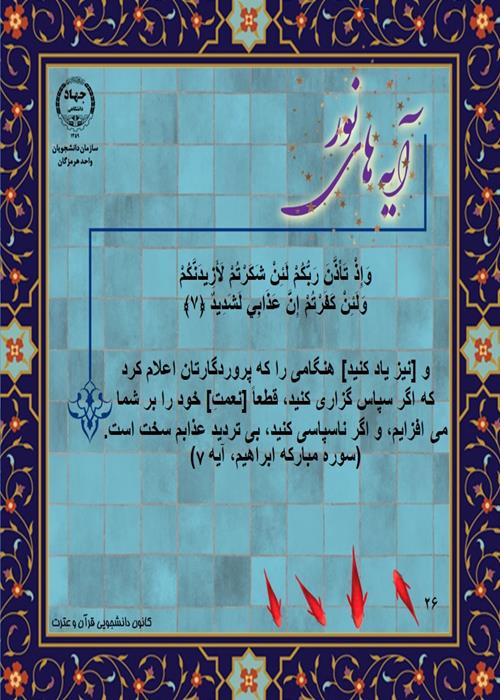 جهاد
دانشگاهی
۱۳۵۹
سازمان دانشجویان
واحد هرمزگان
آیه های نور
وَإِذْ تَأَذَّنَ رَبُّكُمْ لَئِنْ شَكَرْتُمْ لَأَزِيدَنَّكُمْ
وَلَئِنْ كَفَرْتُمْ إِنَّ عَذَابِي لَشَدِيدٌ ﴿۷﴾
و [نیز یاد کنید] هنگامی را که پروردگارتان اعلام کرد
که اگر سپاس گزاری کنید، قطعاً [نعمتِ] خود را بر شما
می افزایم، و اگر ناسپاسی کنید، بی تردید عذابم سخت است.
(سوره مبارکه ابراهیم، آیه ۷)
۲۶
کانون دانشجویی قرآن و عترت